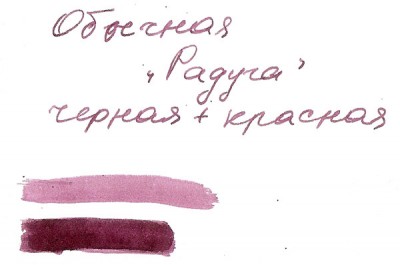 Обычная
„Радуга”
черная + красная